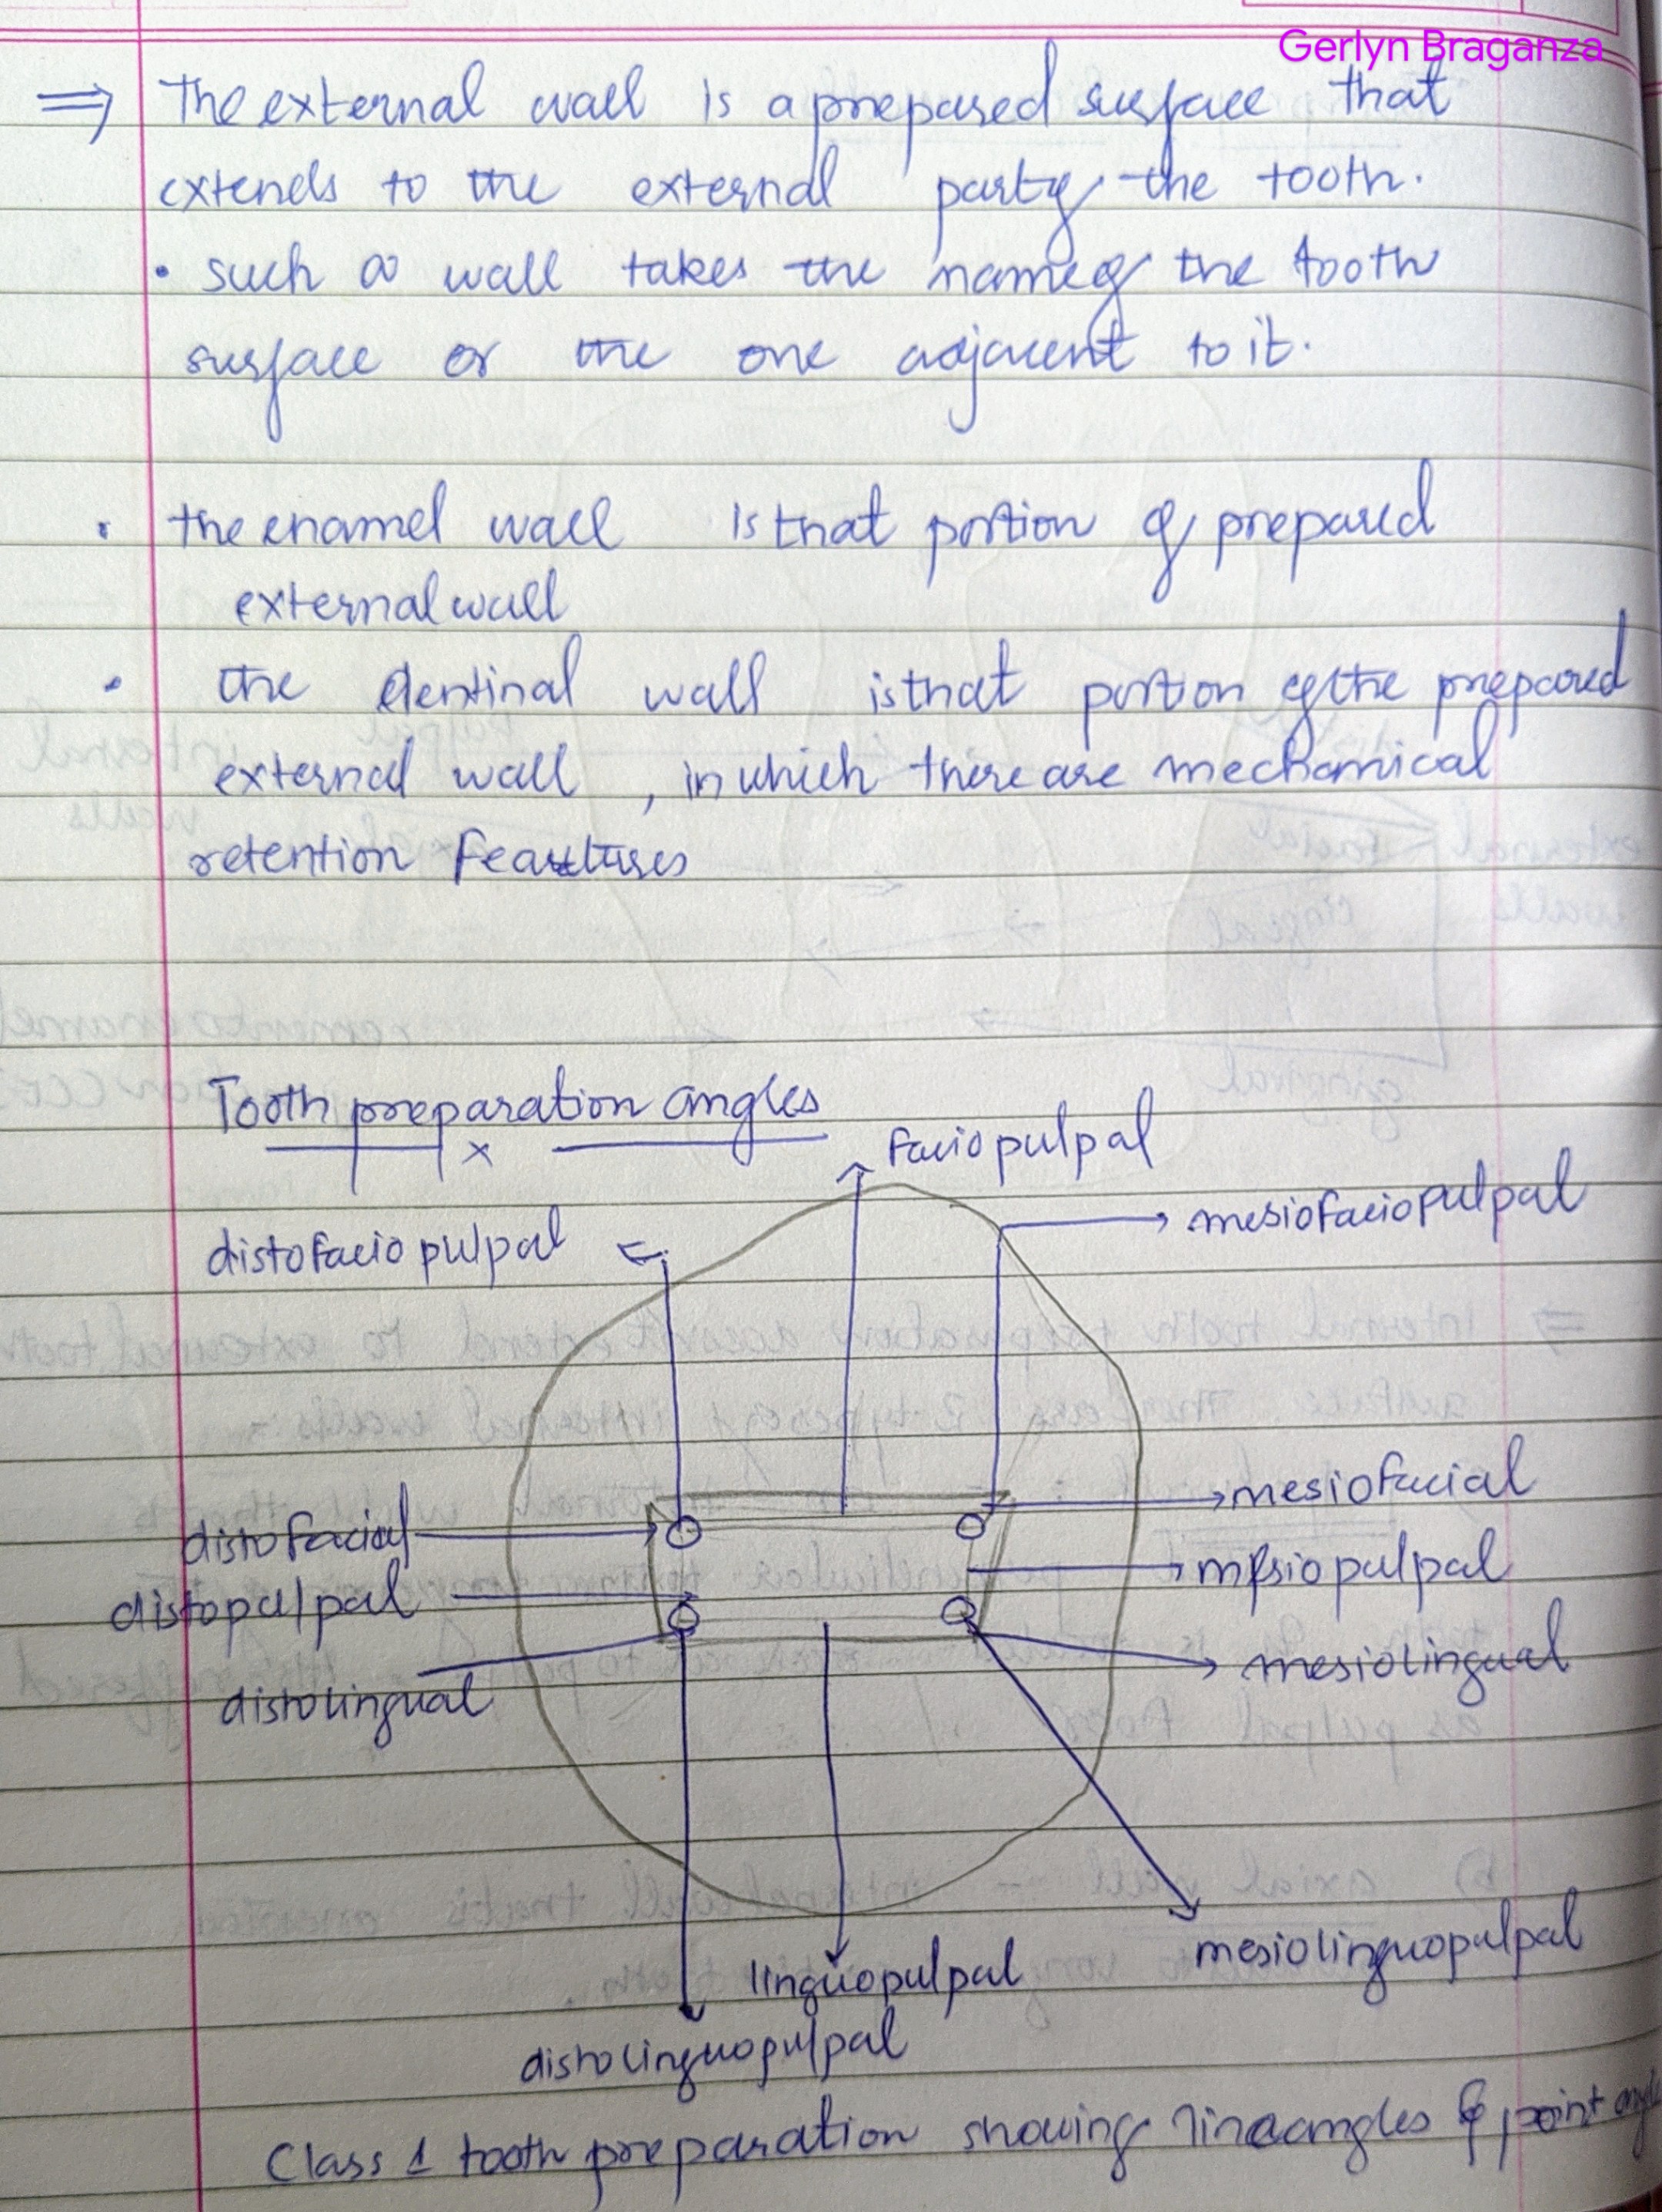 Gerlyn Braganza
⇒ The external wall is a prepared surface that
extends to the external part of the tooth.
• such a wall takes the name of the tooth
surface or the one adjacent to it.
• the enamel wall is that portion of prepared
external wall
• the dentinal wall is that portion of the prepared
external wall, in which there are mechanical
retention features
Tooth preparation angles
faciopulpal
mesiofaciopulpal
distofaciopulpal
mesiofacial
distofacial
mesiopulpal
distopulpal
mesiolingual
distolingual
mesiolinguopulpal
linguopulpal
distolinguopulpal
Class 1 tooth preparation showing line angles & point angle